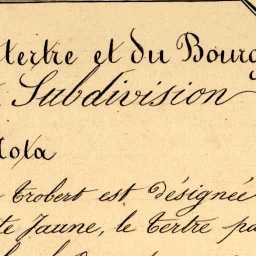 tertre et du Bourg
Subdivision
Nota
Trobert est désignée
te Jaune, le Tertre pa